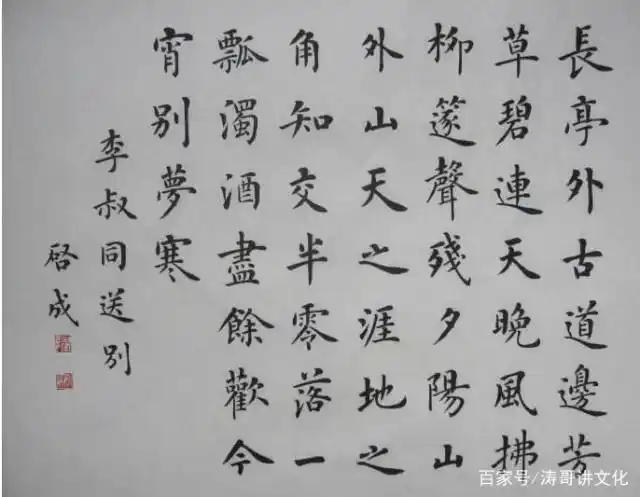 長亭外古道邊芳
草碧連天晚風拂
柳篴聲殘夕陽山
外山天之涯地之
角知交半零落一
瓢濁酒盡餘歡今
宵别夢寒
李叔同送别
啓成
百家号/涛哥讲文化